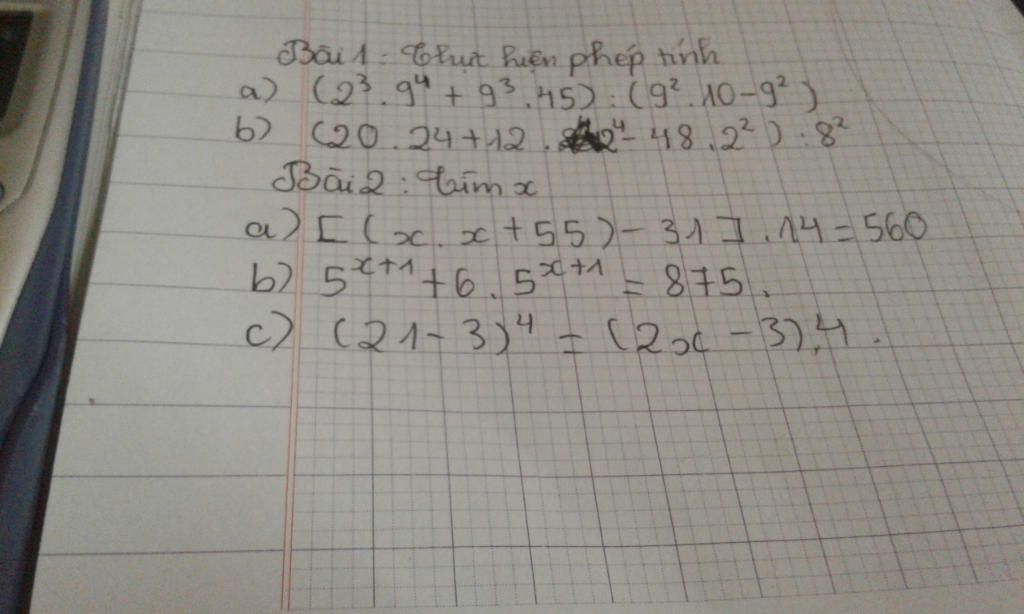 Bài 1: Thực hiện phép tính
a) (2³.9⁴ + 9³.45) : (9².10 - 9²)
b) (20.24 + 12.2⁴ - 48.2²) : 8²
Bài 2: Tìm x
a) [(x.x + 55) - 31].14 = 560
b) 5ˣ⁺¹ + 6.5ˣ⁺¹ = 875.
c) (21 - 3)⁴ = (2x - 3).4.